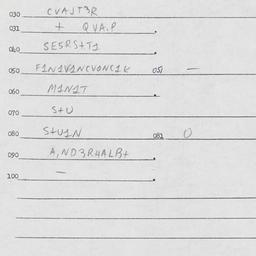 030 CVAJT3R
031 + QVA.P
040 SE5RS+T1
050 F1N1V1NCVONC1K 051 —
060 M1N1T
070 S+U
080 S+U1N 081 0
090 A,ND3R4ALB+
100 —